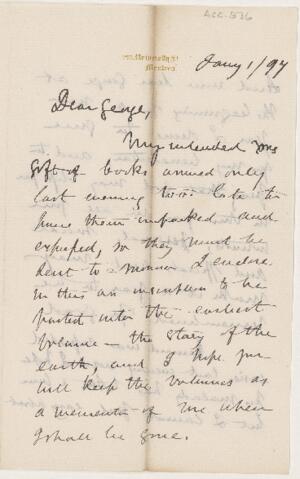 ACC. 536
Montreal
Jany 1/97
Dear George,
My intended Xms
gift of books arrived only
last evening too late to
have them unpacked and
exposed, so they must be
sent to-morrow I enclose
in this an inscription to be
pasted into the earliest
volume – the story of the
earth, and I hope you
will keep the volumes as
a memento of me when
I shall be gone.